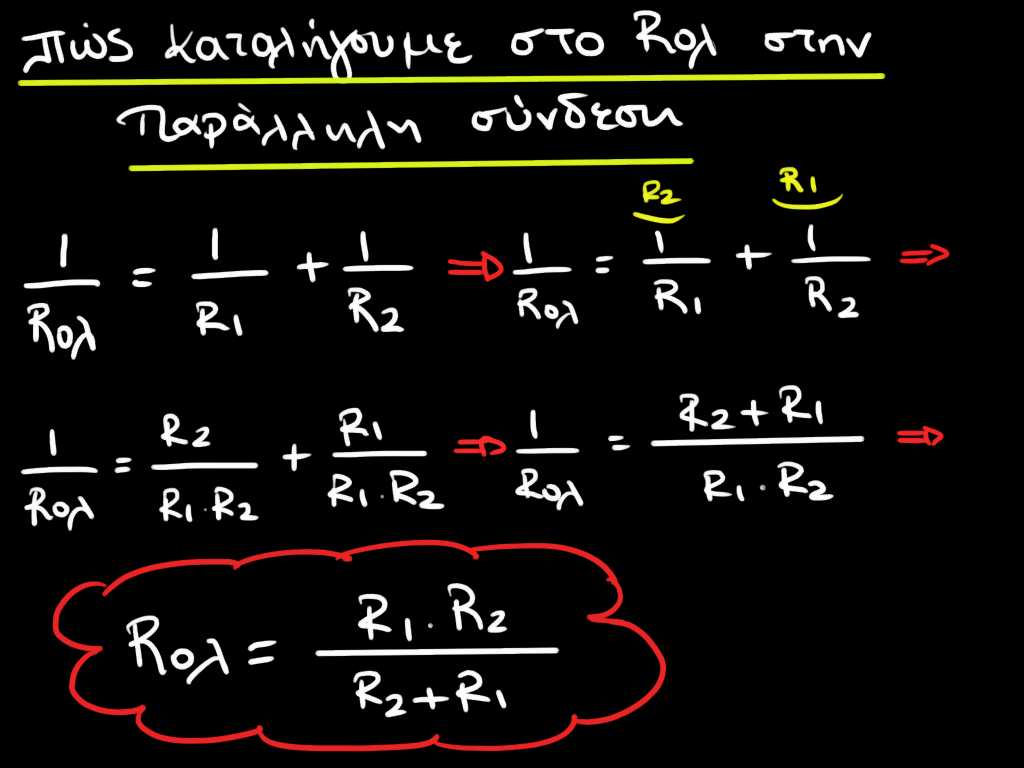 πώς καταλήγουμε στο Rολ στην
παράλληλη σύνδεση
R2 R1
1/Rολ = 1/R1 + 1/R2 ⇒ 1/Rολ = 1/R1 + 1/R2 ⇒
1/Rολ = R2/(R1·R2) + R1/(R1·R2) ⇒ 1/Rολ = (R2+R1)/(R1·R2) ⇒
Rολ = (R1·R2)/(R2+R1)